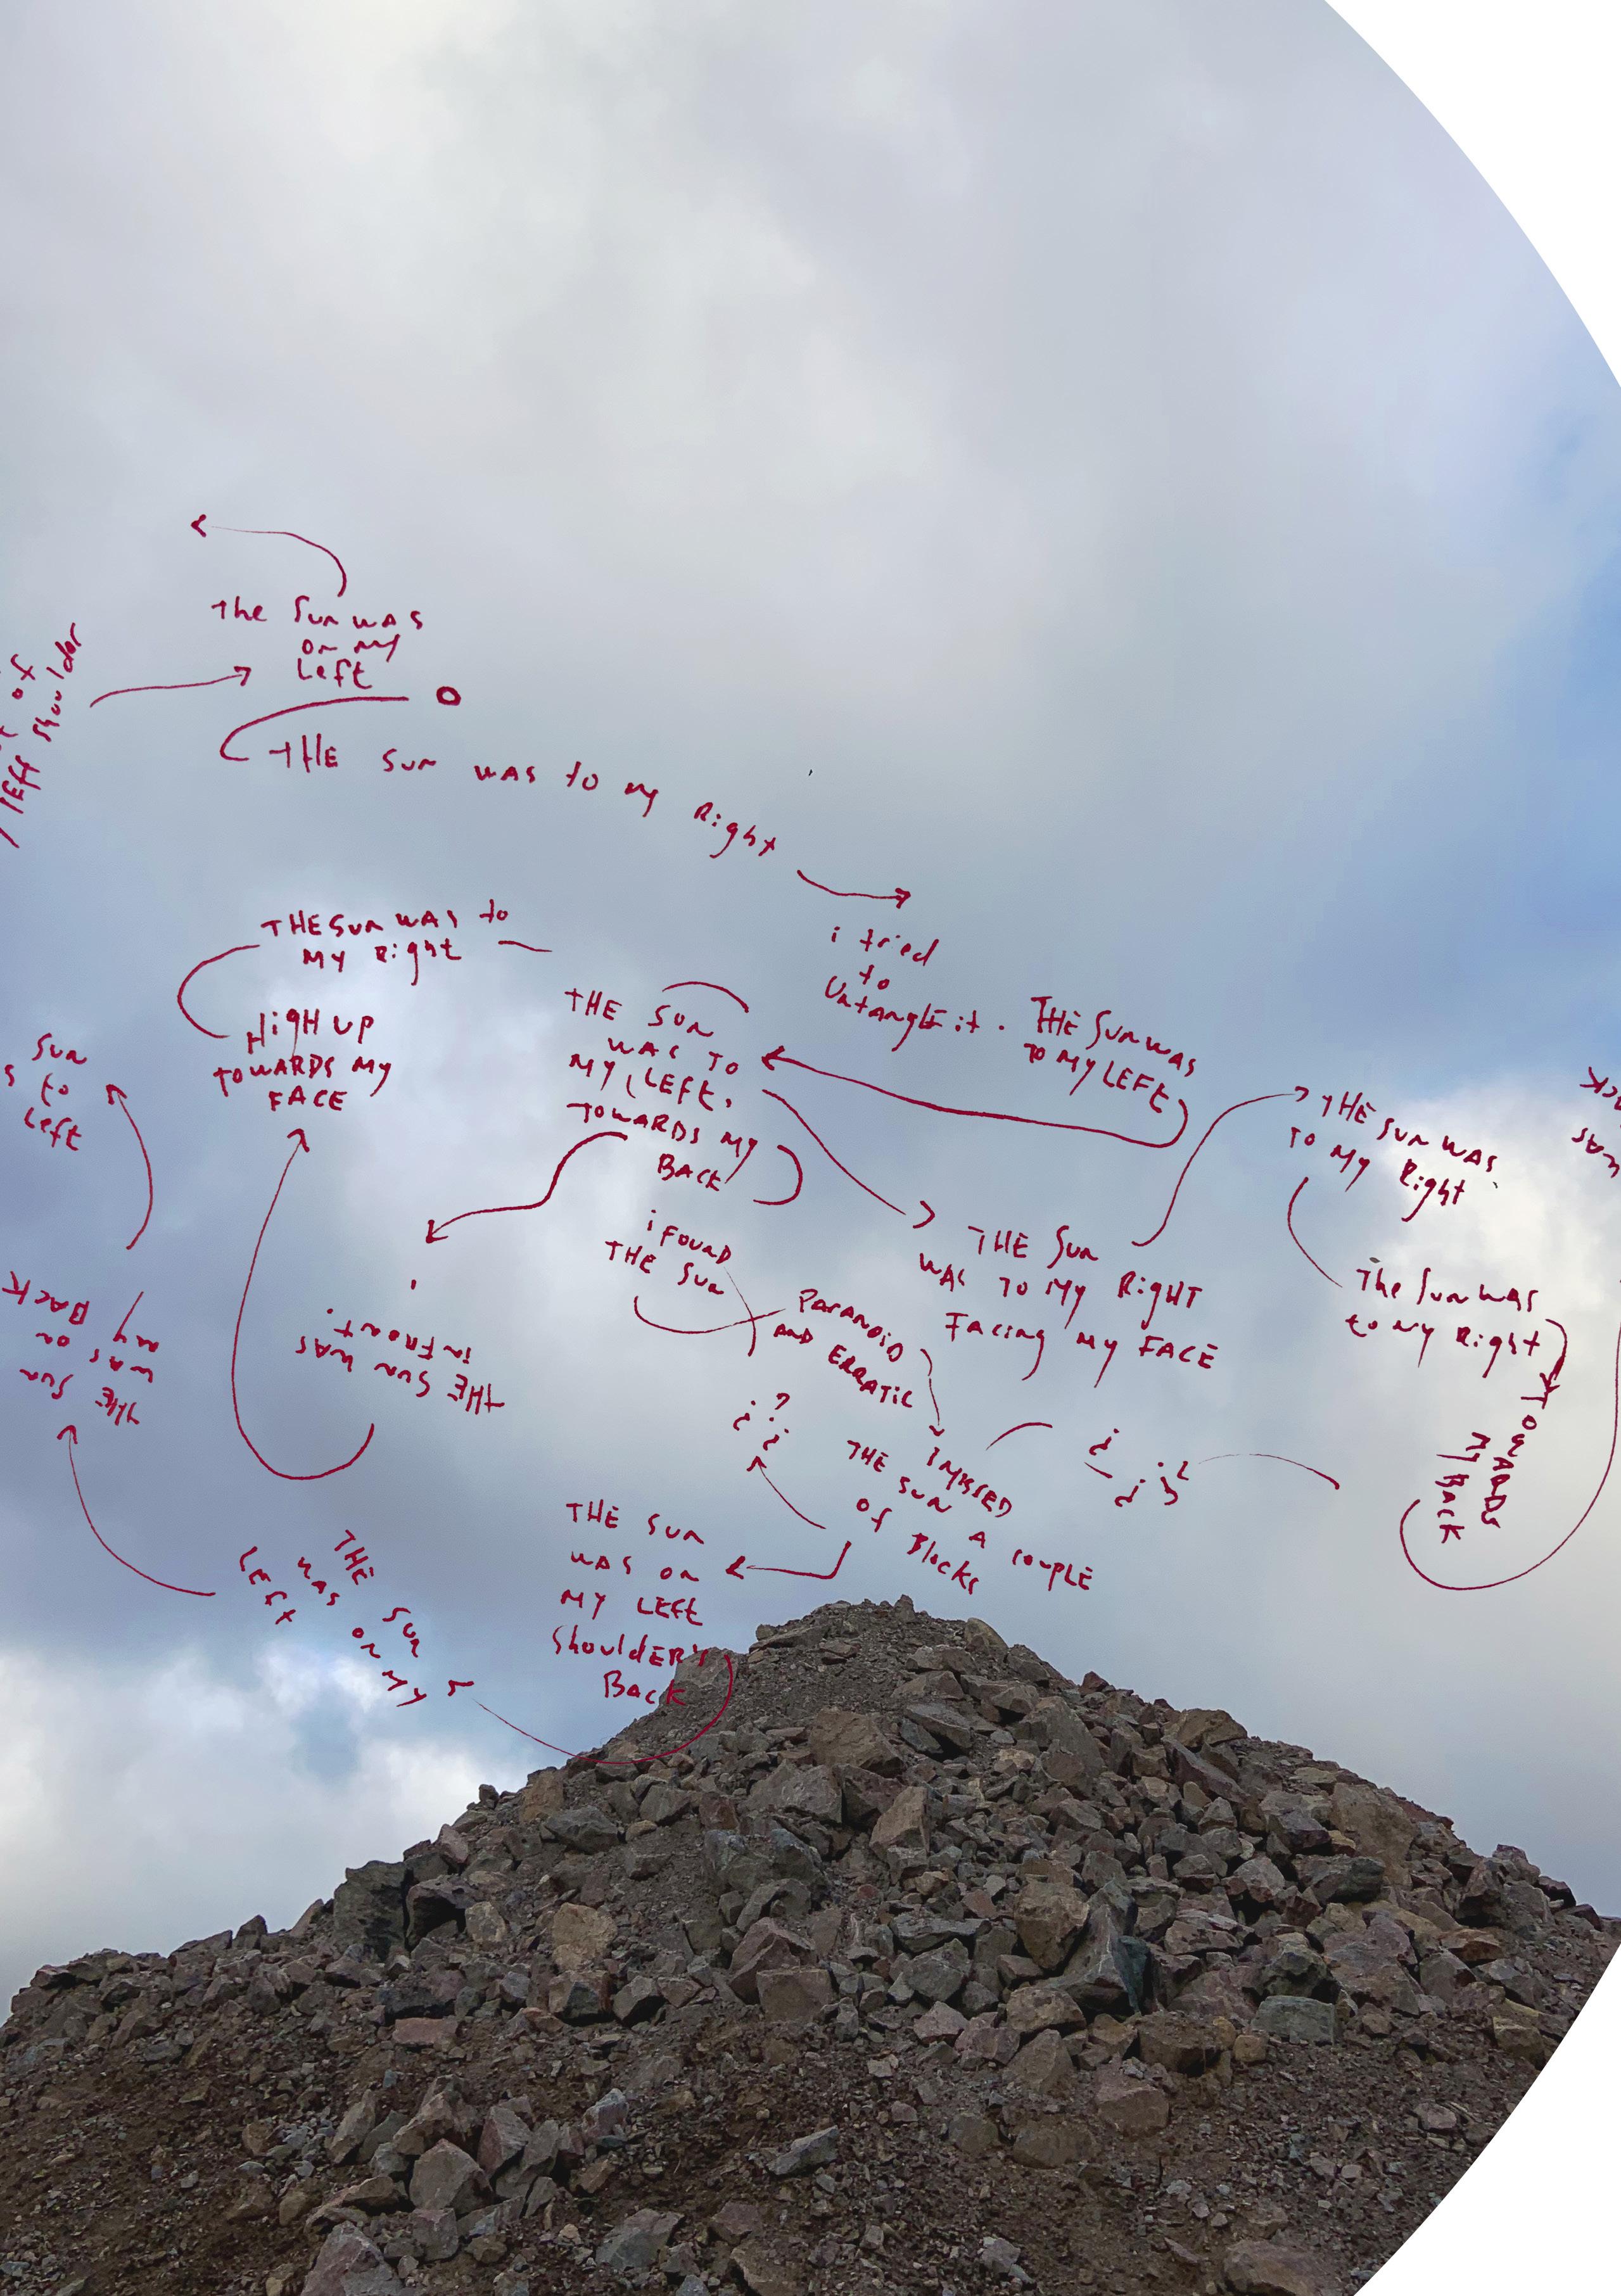 The Sun was
on my
Left
of
left shoulder
THE SUN WAS to my Right
i tried
to
UntanglE it .
THE SUN WAS to
MY Right
HigH UP
TOWARDS MY
FACE
THE SUN
WAS TO
MY LEFT,
TOWARDS MY
BACK
THE SUN WAS
TO MY LEFT
THE SUN WAS
TO MY Right
Sun
s to
Left
i FOUND
THE SUN
THE SUN
WAS TO MY RIGHT
FAcing MY FACE
The Sun was
to my Right
TOWARDS
MY BACK
WAS
PARANOiD
AND ERRATiC
THE SUN WAS
in FRONT.
THE SUN
WAS ON
MY BACK
i MISSED
THE SUN A COUPLE
OF Blocks
THE SUN
WAS ON
MY LEFt
ShouldER's
BACK
THE SUN
WAS ON MY
LEFT